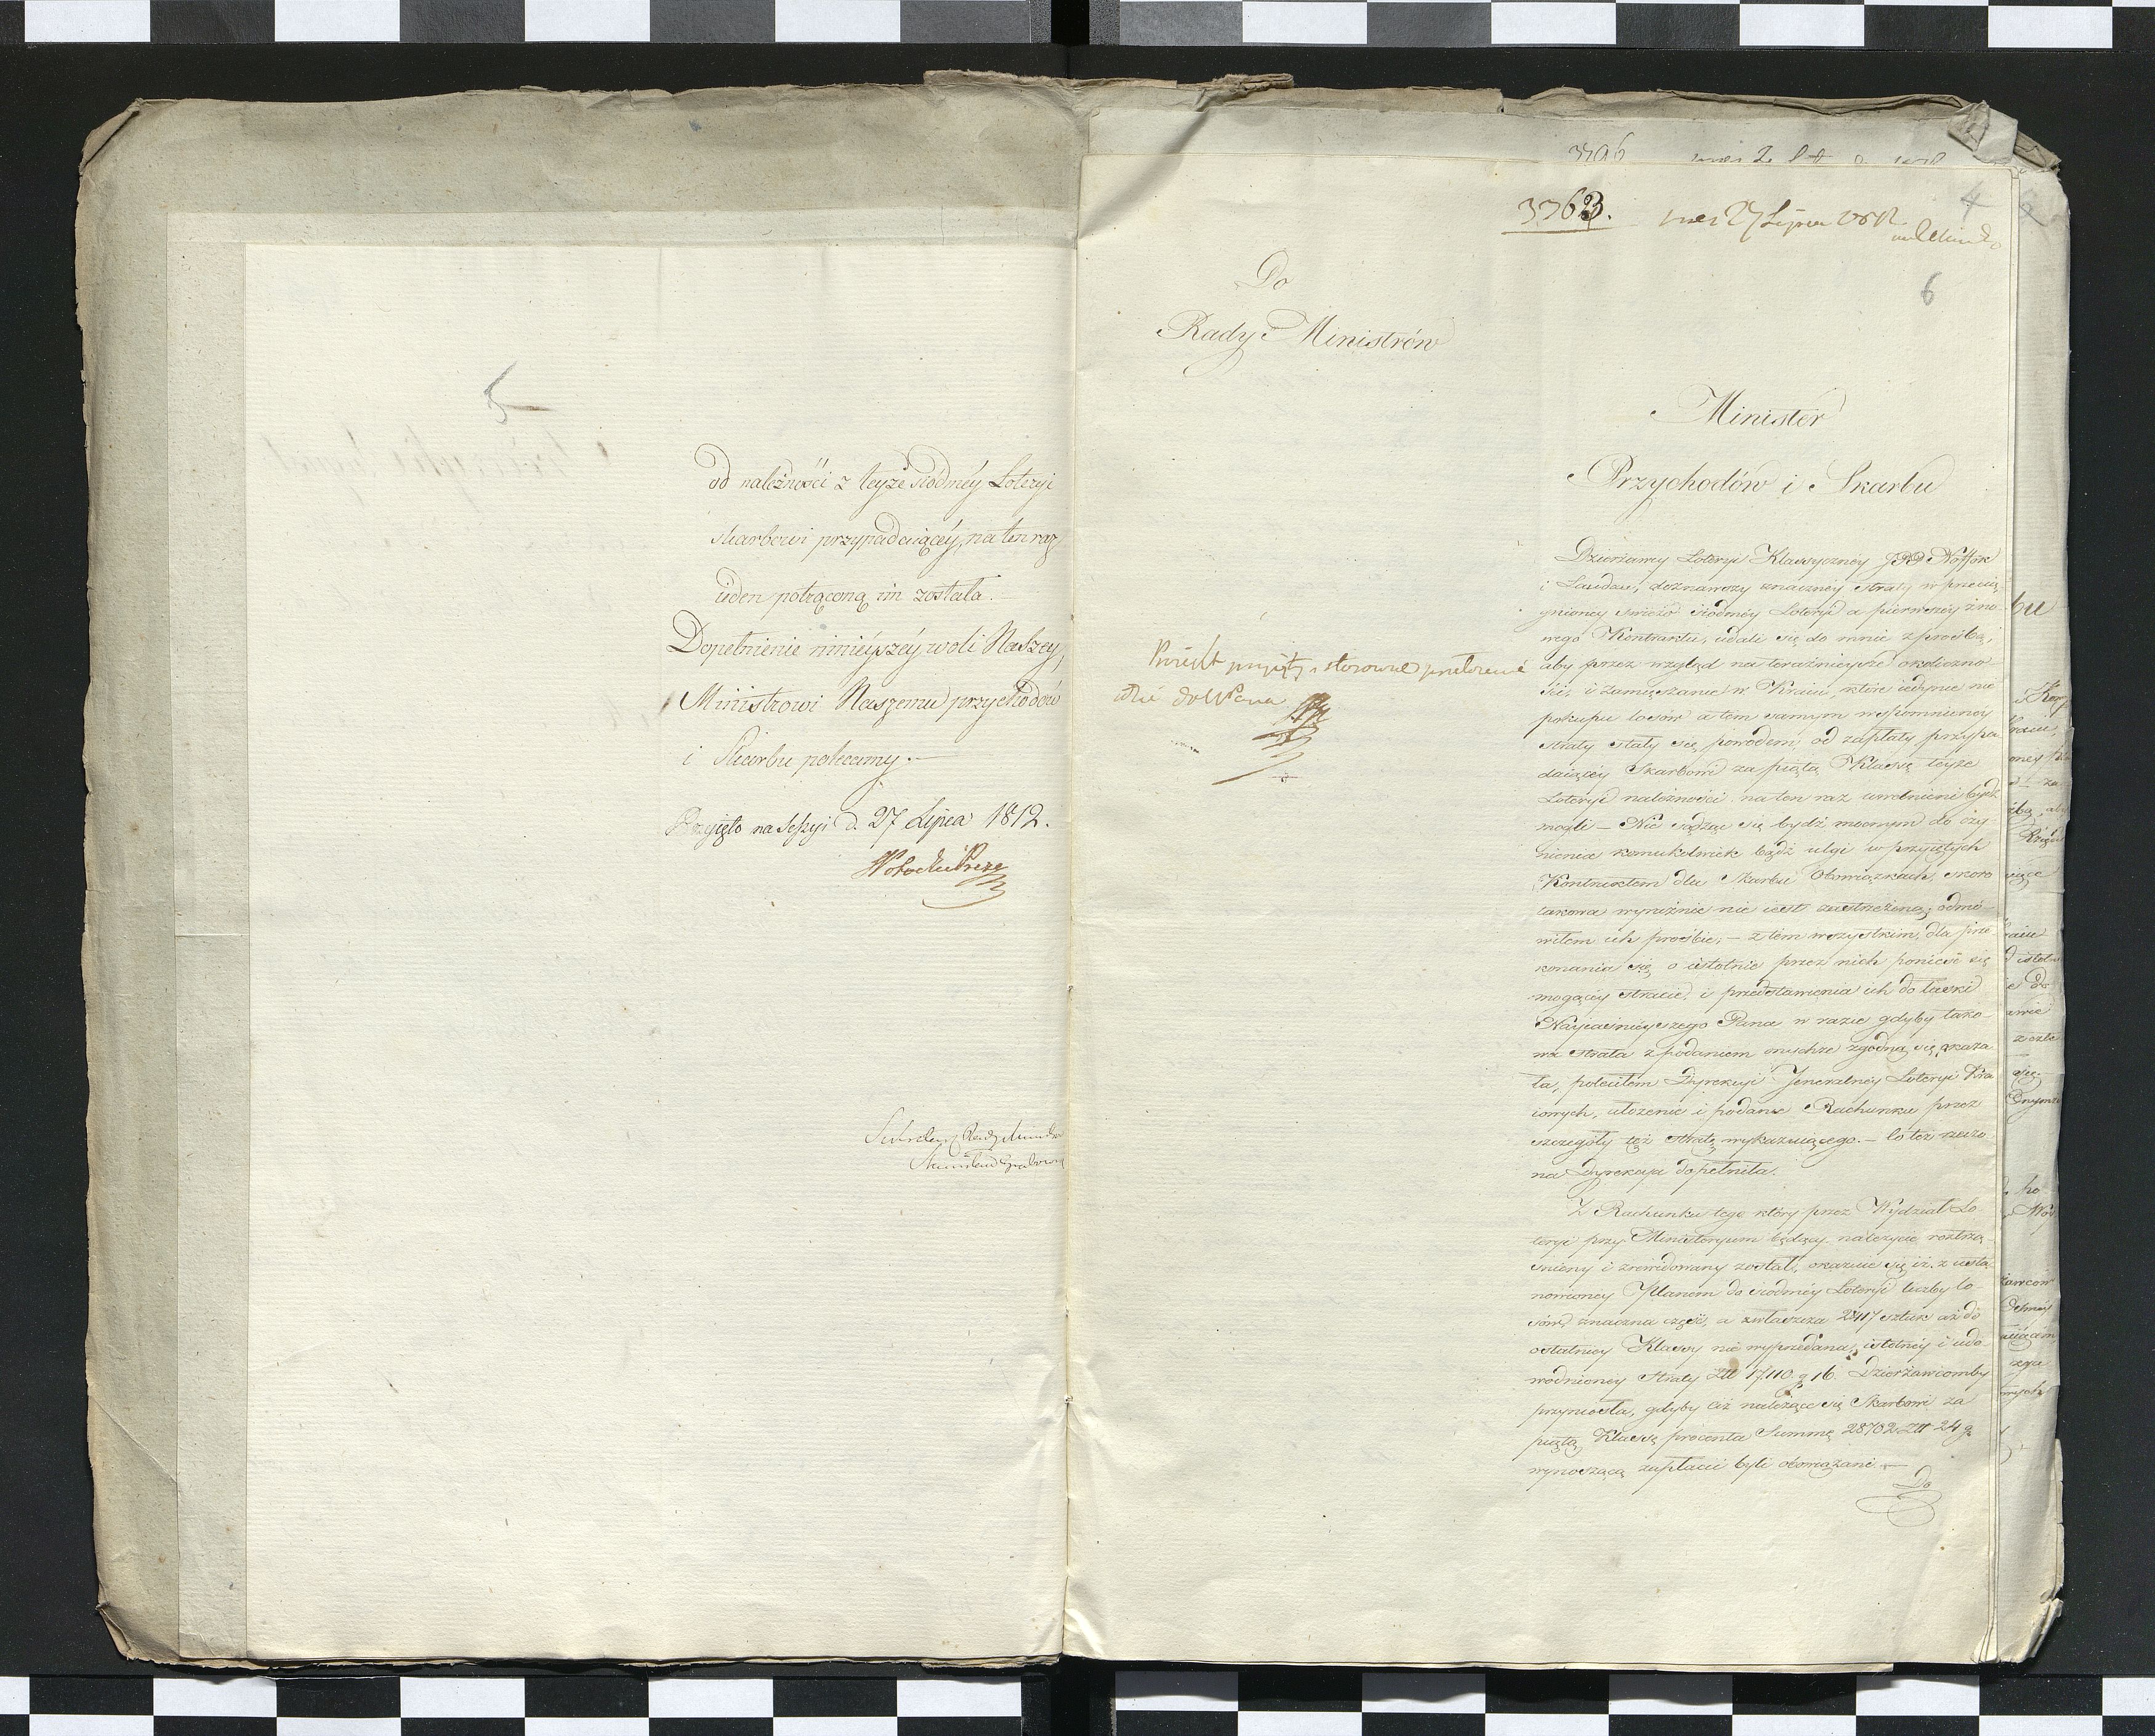 5
od należności z teyże siódméy Loteryi
skarbowi przypadaiącéy, na ten raz
ieden potrąconą im została. —
Dopełnienie ninieyszéy woli Naszey,
Ministrowi Naszemu przychodów
i Skarbu polecamy. —
Przyięto na Sessyi d. 27 Lipca 1812.
Sekretarz Rady Ministrów
3763. 27 Lipca 1812
4
6
Do
Rady Ministrów
Minister
Przychodów i Skarbu
Proiekt przyięty
Dzierżawcy Loteryi Klassyczney JPP Noffok
i Laudau, doznawszy znaczney straty w przecią-
gnioney świeżo siódmey Loteryi a pierwszey z no-
wego Kontraktu, udali się do mnie z prośbą,
aby przez wzgląd na teraźnieysze okoliczno-
ści, i zamięszanie w Kraiu, które iedynie nie
pokupu losów a tem samym wspomnioney
straty stały się powodem, od zapłaty przypa-
daiącéy Skarbowi za piątą Klassę teyże
Loteryi należności na ten raz uwolnieni bydź
mogli — Nie sądząc się bydź mocnym do czy-
nienia komukolwiek bądź ulgi w przyiętych
Kontraktem dla Skarbu Obowiązkach, skoro
takowa wyraźnie nie iest zastrzeżoną; odmó-
wiłem ich prośbie, — z tem wszystkim, dla prze-
konania się o istotnie przez nich ponieść się
mogącéy stracie, i przedstawienia ich do łaski
Nayiaśnieyszego Pana w razie gdyby tako-
wa strata z podaniem onychże zgodną się okaza-
ła, poleciłem Dyrekcyi Jeneralnéy Loteryi Kra-
iowych, ułożenie i podanie Rachunku przez
szczegóły téż stratę wykazuiącego. — Co też rzeczo-
na Dyrekcya dopełniła.
Z Rachunku tego który przez Wydział Lo-
teryi przy Ministeryum będący należycie roztrzą-
śniony i zrewidowany został, okazuie się iż, z usta-
nowioney Planem do siódméy Loteryi liczby lo-
sów znaczna część, a zwłaszcza 2417 sztuk aż do
ostatniey Klassy nie wyprzedana, istotnéy i udo-
wodnioney straty Złł 17,110 g 16. Dzierżawcomby
przyniosła, gdyby ciż należące się Skarbowi za
piątą Klassę procenta Summę 28702 Złł 24 g
wynoszącą zapłacić byli obowiązani —
Do